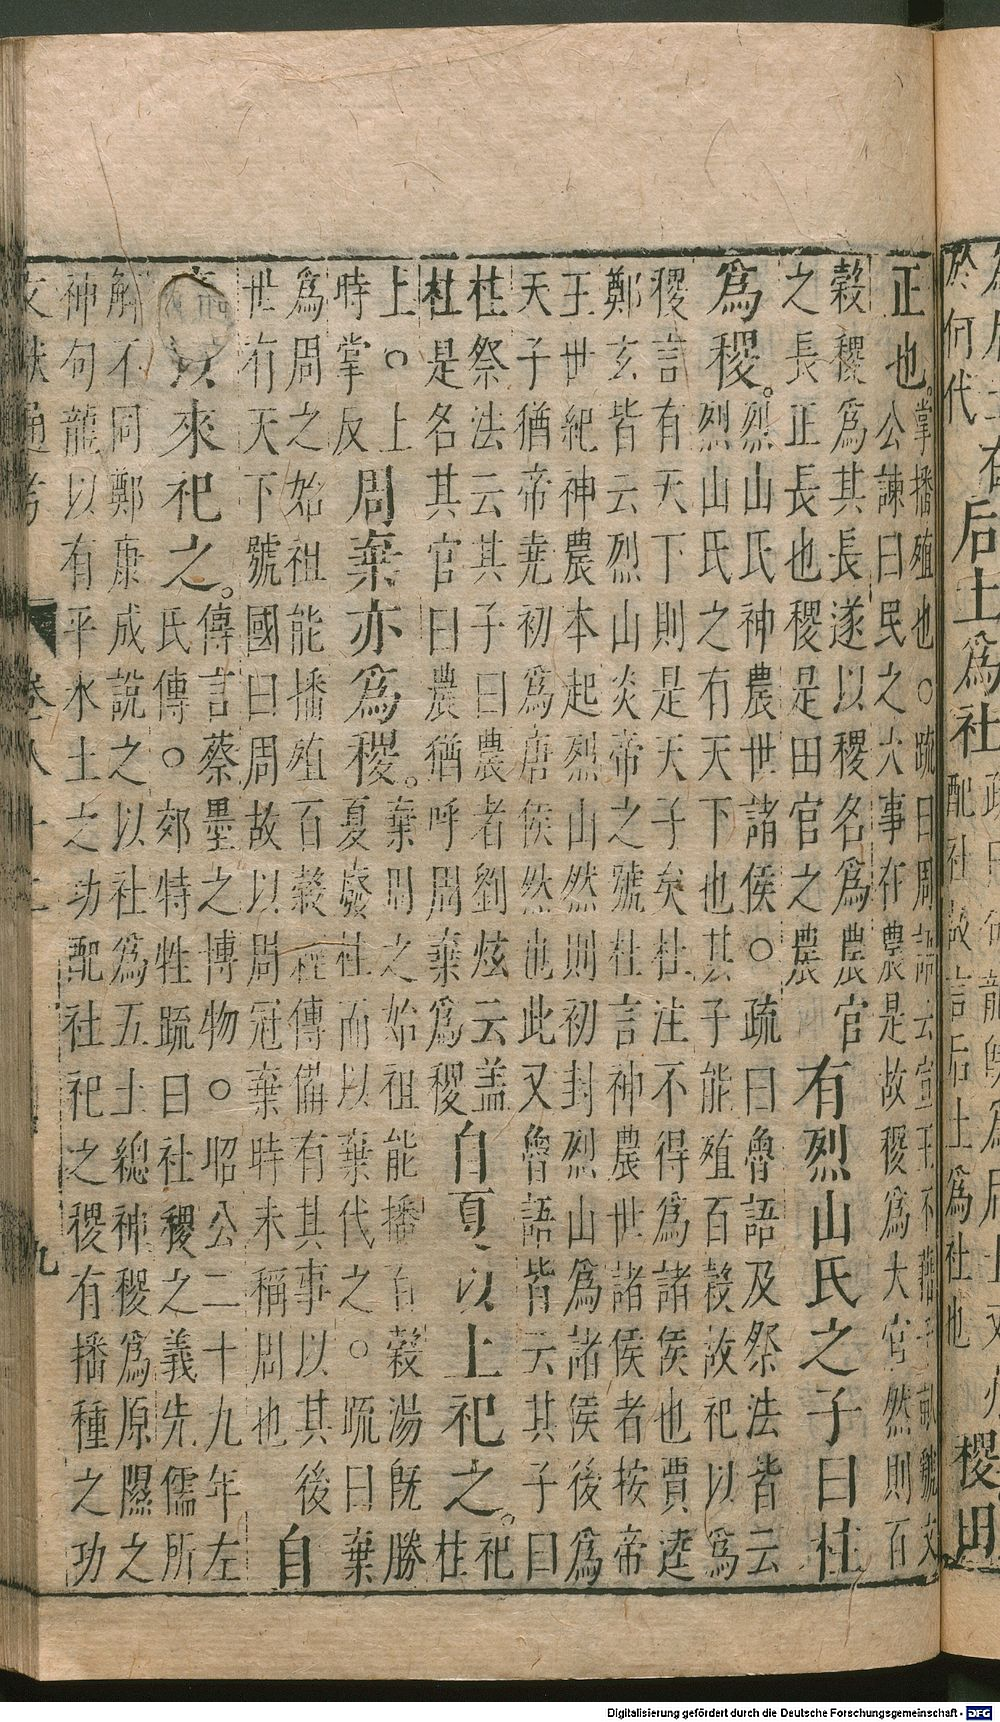 后土為社
配社故言后土為社也
稷田
於何代
正也。掌播殖也○疏曰周語云宣王不藉千畝虢文
公諫曰民之大事在農是故稷為大官然則百
穀稷為其長遂以稷名為農官
之長正長也稷是田官之農
有烈山氏之子曰柱
為稷。烈山氏神農世諸侯○疏曰魯語及祭法皆云
烈山氏之有天下也其子能殖百穀故祀以為
稷言有天下則是天子矣杜注不得為諸侯也賈逵
鄭玄皆云烈山炎帝之號杜言神農世諸侯者按帝
王世紀神農本起烈山然則初封烈山為諸侯後為
天子猶帝堯初為唐侯然也此又魯語皆云其子曰
柱祭法云其子曰農者劉炫云盖
柱是名其官曰農猶呼周棄為稷
自夏以上祀之。祀
柱
上○上
時掌反
周棄亦為稷。棄周之始祖能播百穀湯既勝
夏廢社而以棄代之○疏曰棄
為周之始祖能播殖百穀經傳備有其事以其後
世有天下號國曰周故以周冠棄時未稱周也
自
以來祀之。傳言蔡墨之博物○昭公二十九年左
氏傳○郊特牲疏曰社稷之義先儒所
解不同鄭康成說之以社為五土總神稷為原隰之
神句龍以有平水土之功配社祀之稷有播種之功
通考 卷八十二 九
Digitalisierung gefördert durch die Deutsche Forschungsgemeinschaft - DFG